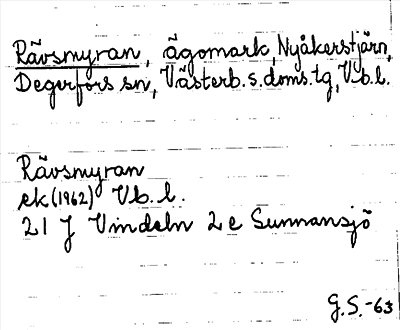 Rävsmyran, ägomark, Nyåkerstjärn,
Degerfors sn, Västerb.s.doms.tg, Vb.l.
Rävsmyran
ek (1962) Vb.l.
21 J Vindeln 2e Sunnansjö
G.S.-63